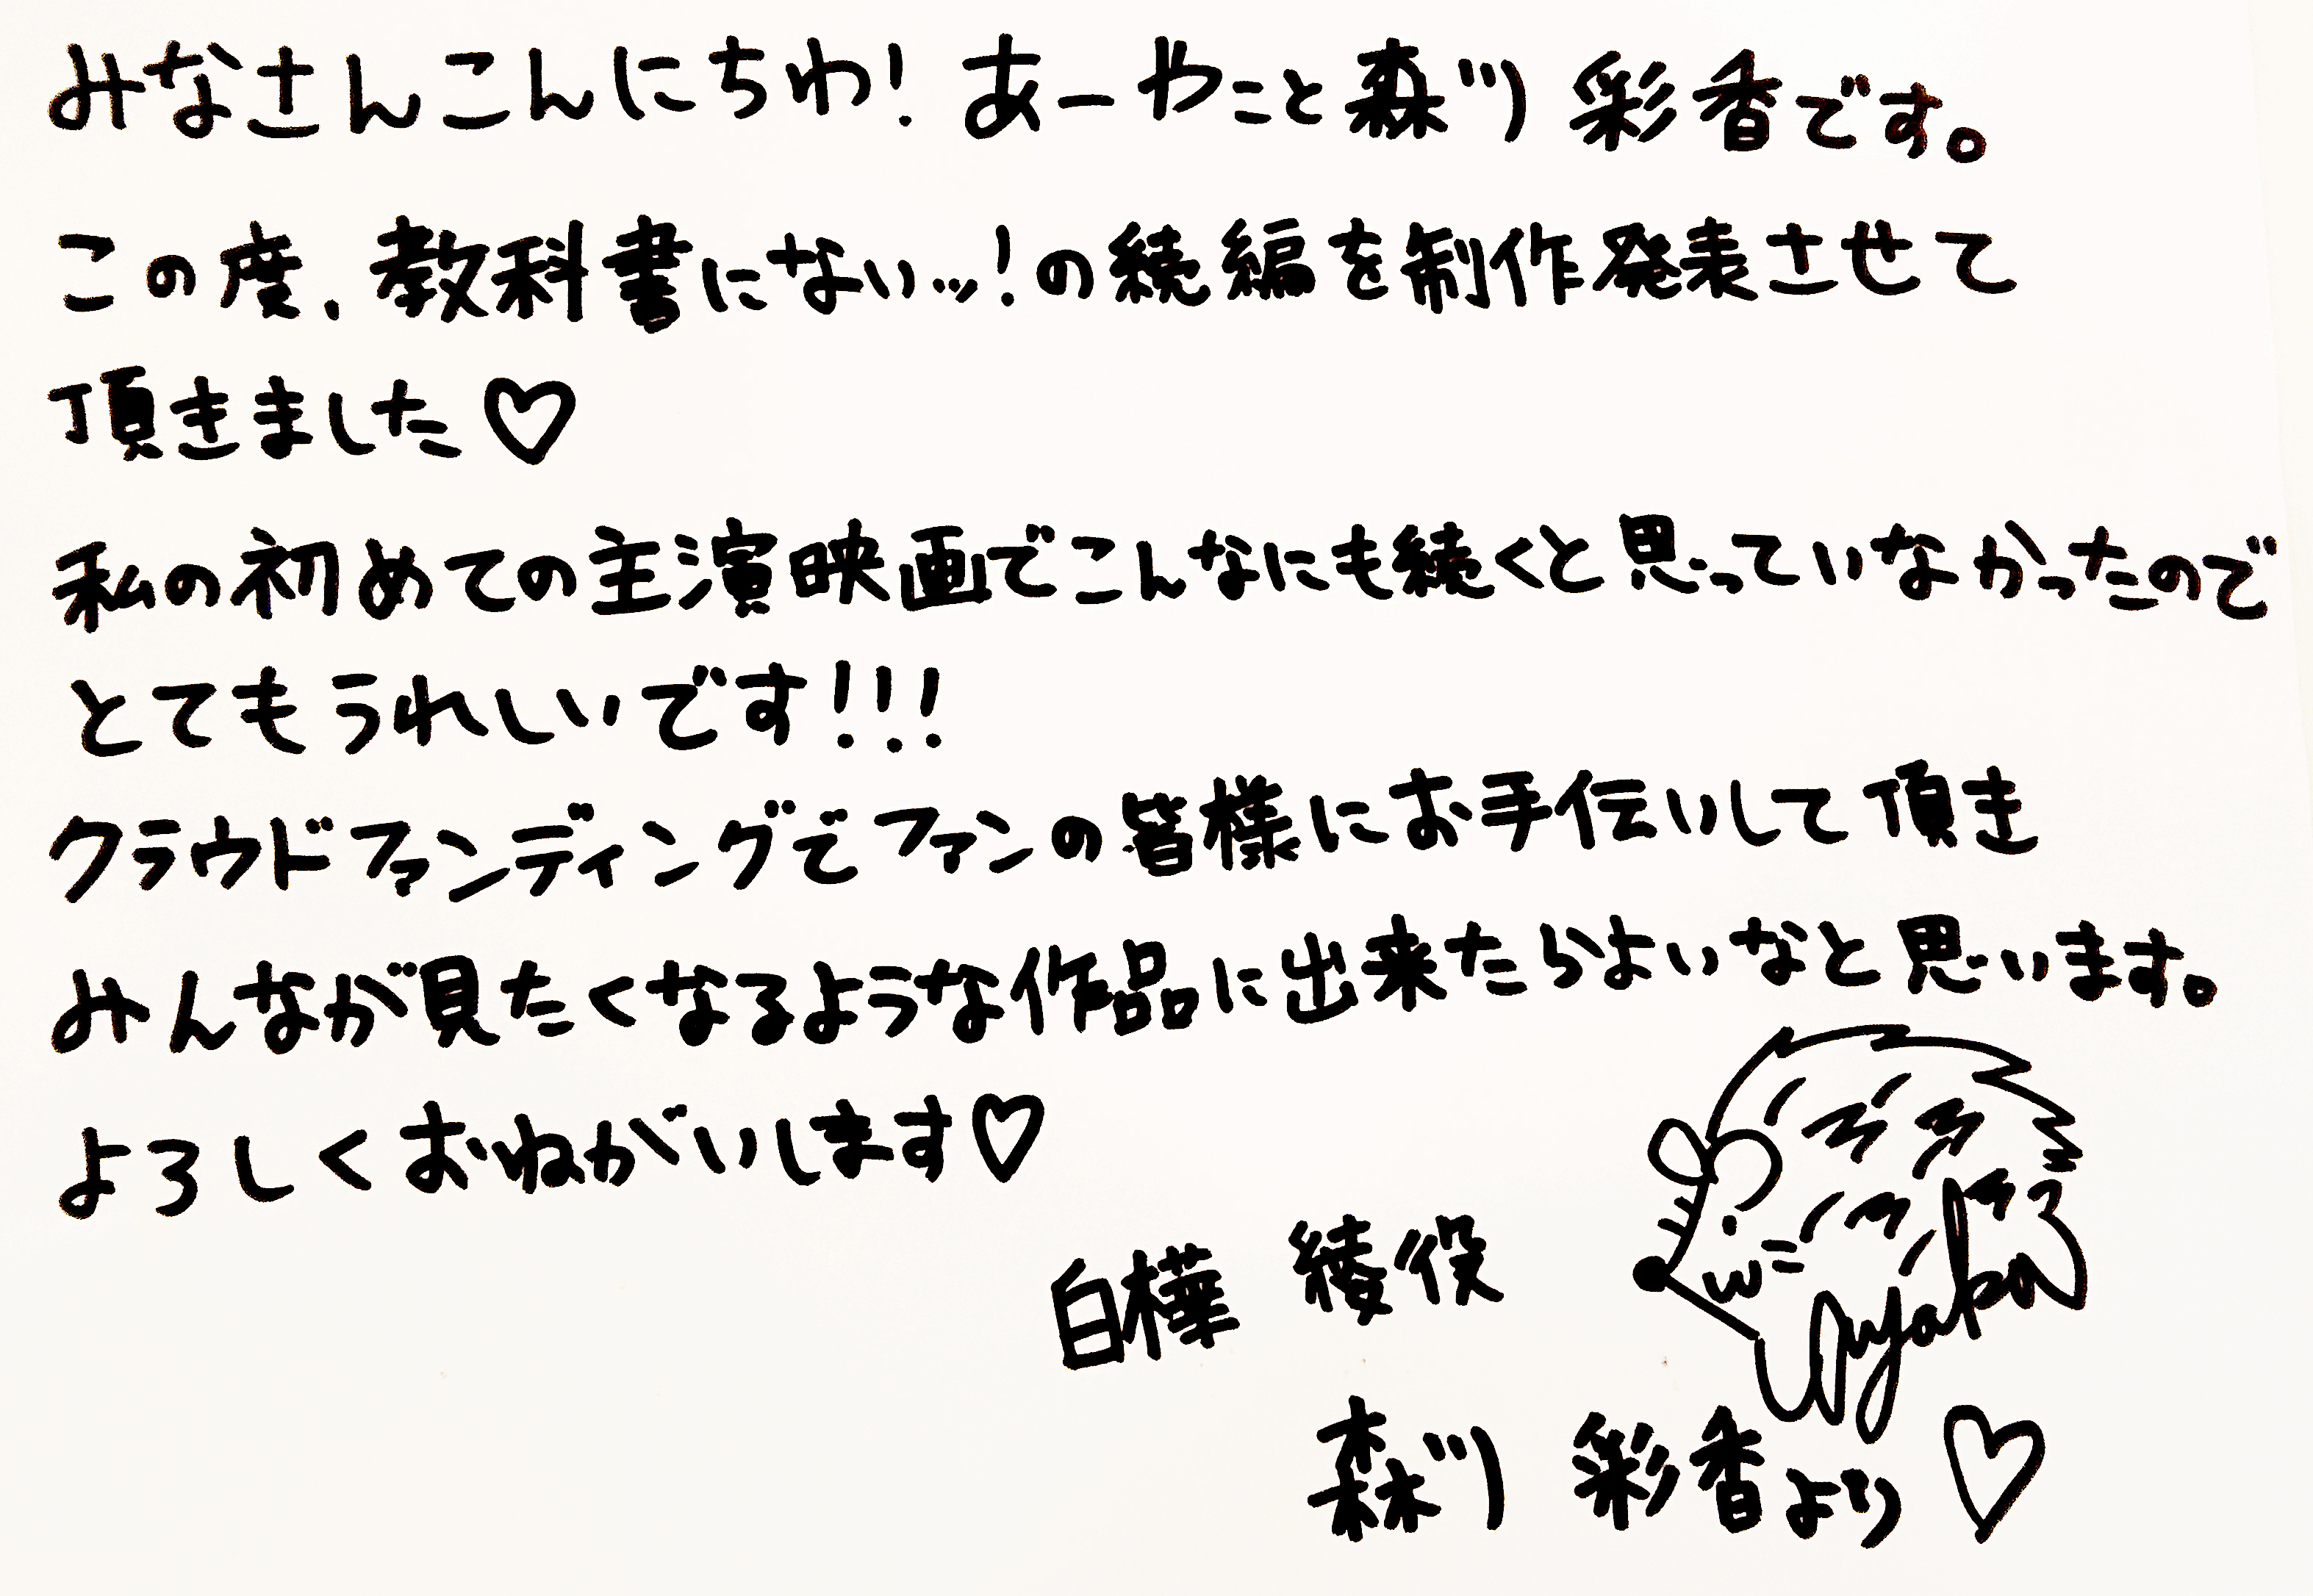 みなさんこんにちわ！あーやこと森川彩香です。
この度、教科書にないッ！の続編を制作発表させて
頂きました♡
私の初めての主演映画でこんなにも続くと思っていなかったので
とてもうれしいです！！！
クラウドファンディングでファンの皆様にお手伝いして頂き
みんなが見たくなるような作品に出来たらよいなと思います。
よろしくおねがいします♡
白樺 綾役
Ayaka
森川 彩香より♡